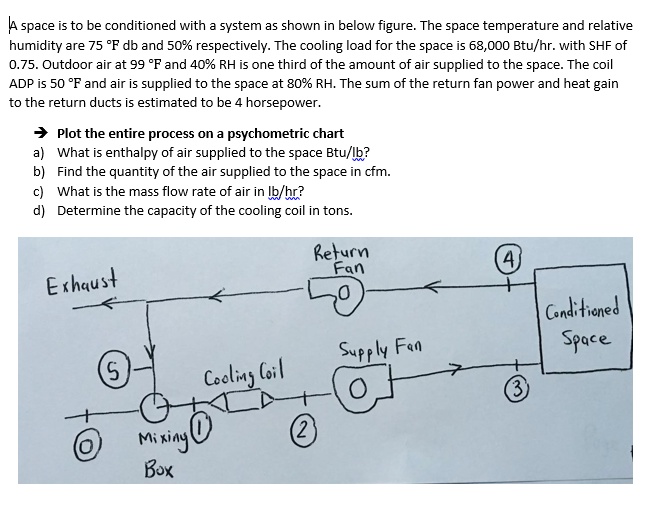 A space is to be conditioned with a system as shown in below figure. The space temperature and relative
humidity are 75 °F db and 50% respectively. The cooling load for the space is 68,000 Btu/hr. with SHF of
0.75. Outdoor air at 99 °F and 40% RH is one third of the amount of air supplied to the space. The coil
ADP is 50 °F and air is supplied to the space at 80% RH. The sum of the return fan power and heat gain
to the return ducts is estimated to be 4 horsepower.
→ Plot the entire process on a psychometric chart
a) What is enthalpy of air supplied to the space Btu/lb?
b) Find the quantity of the air supplied to the space in cfm.
c) What is the mass flow rate of air in lb/hr?
d) Determine the capacity of the cooling coil in tons.
Return
Fan
4
Exhaust
Conditioned
Space
Supply Fan
5
Cooling Coil
3
0
Mixing
1
2
Box